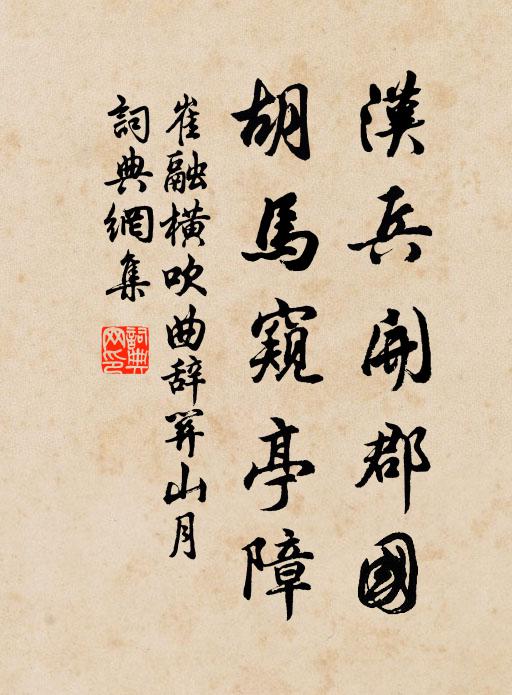 漢兵開郡國
胡馬窺亭障
崔融橫吹曲辞關山月
詞典網集
詞典
网印